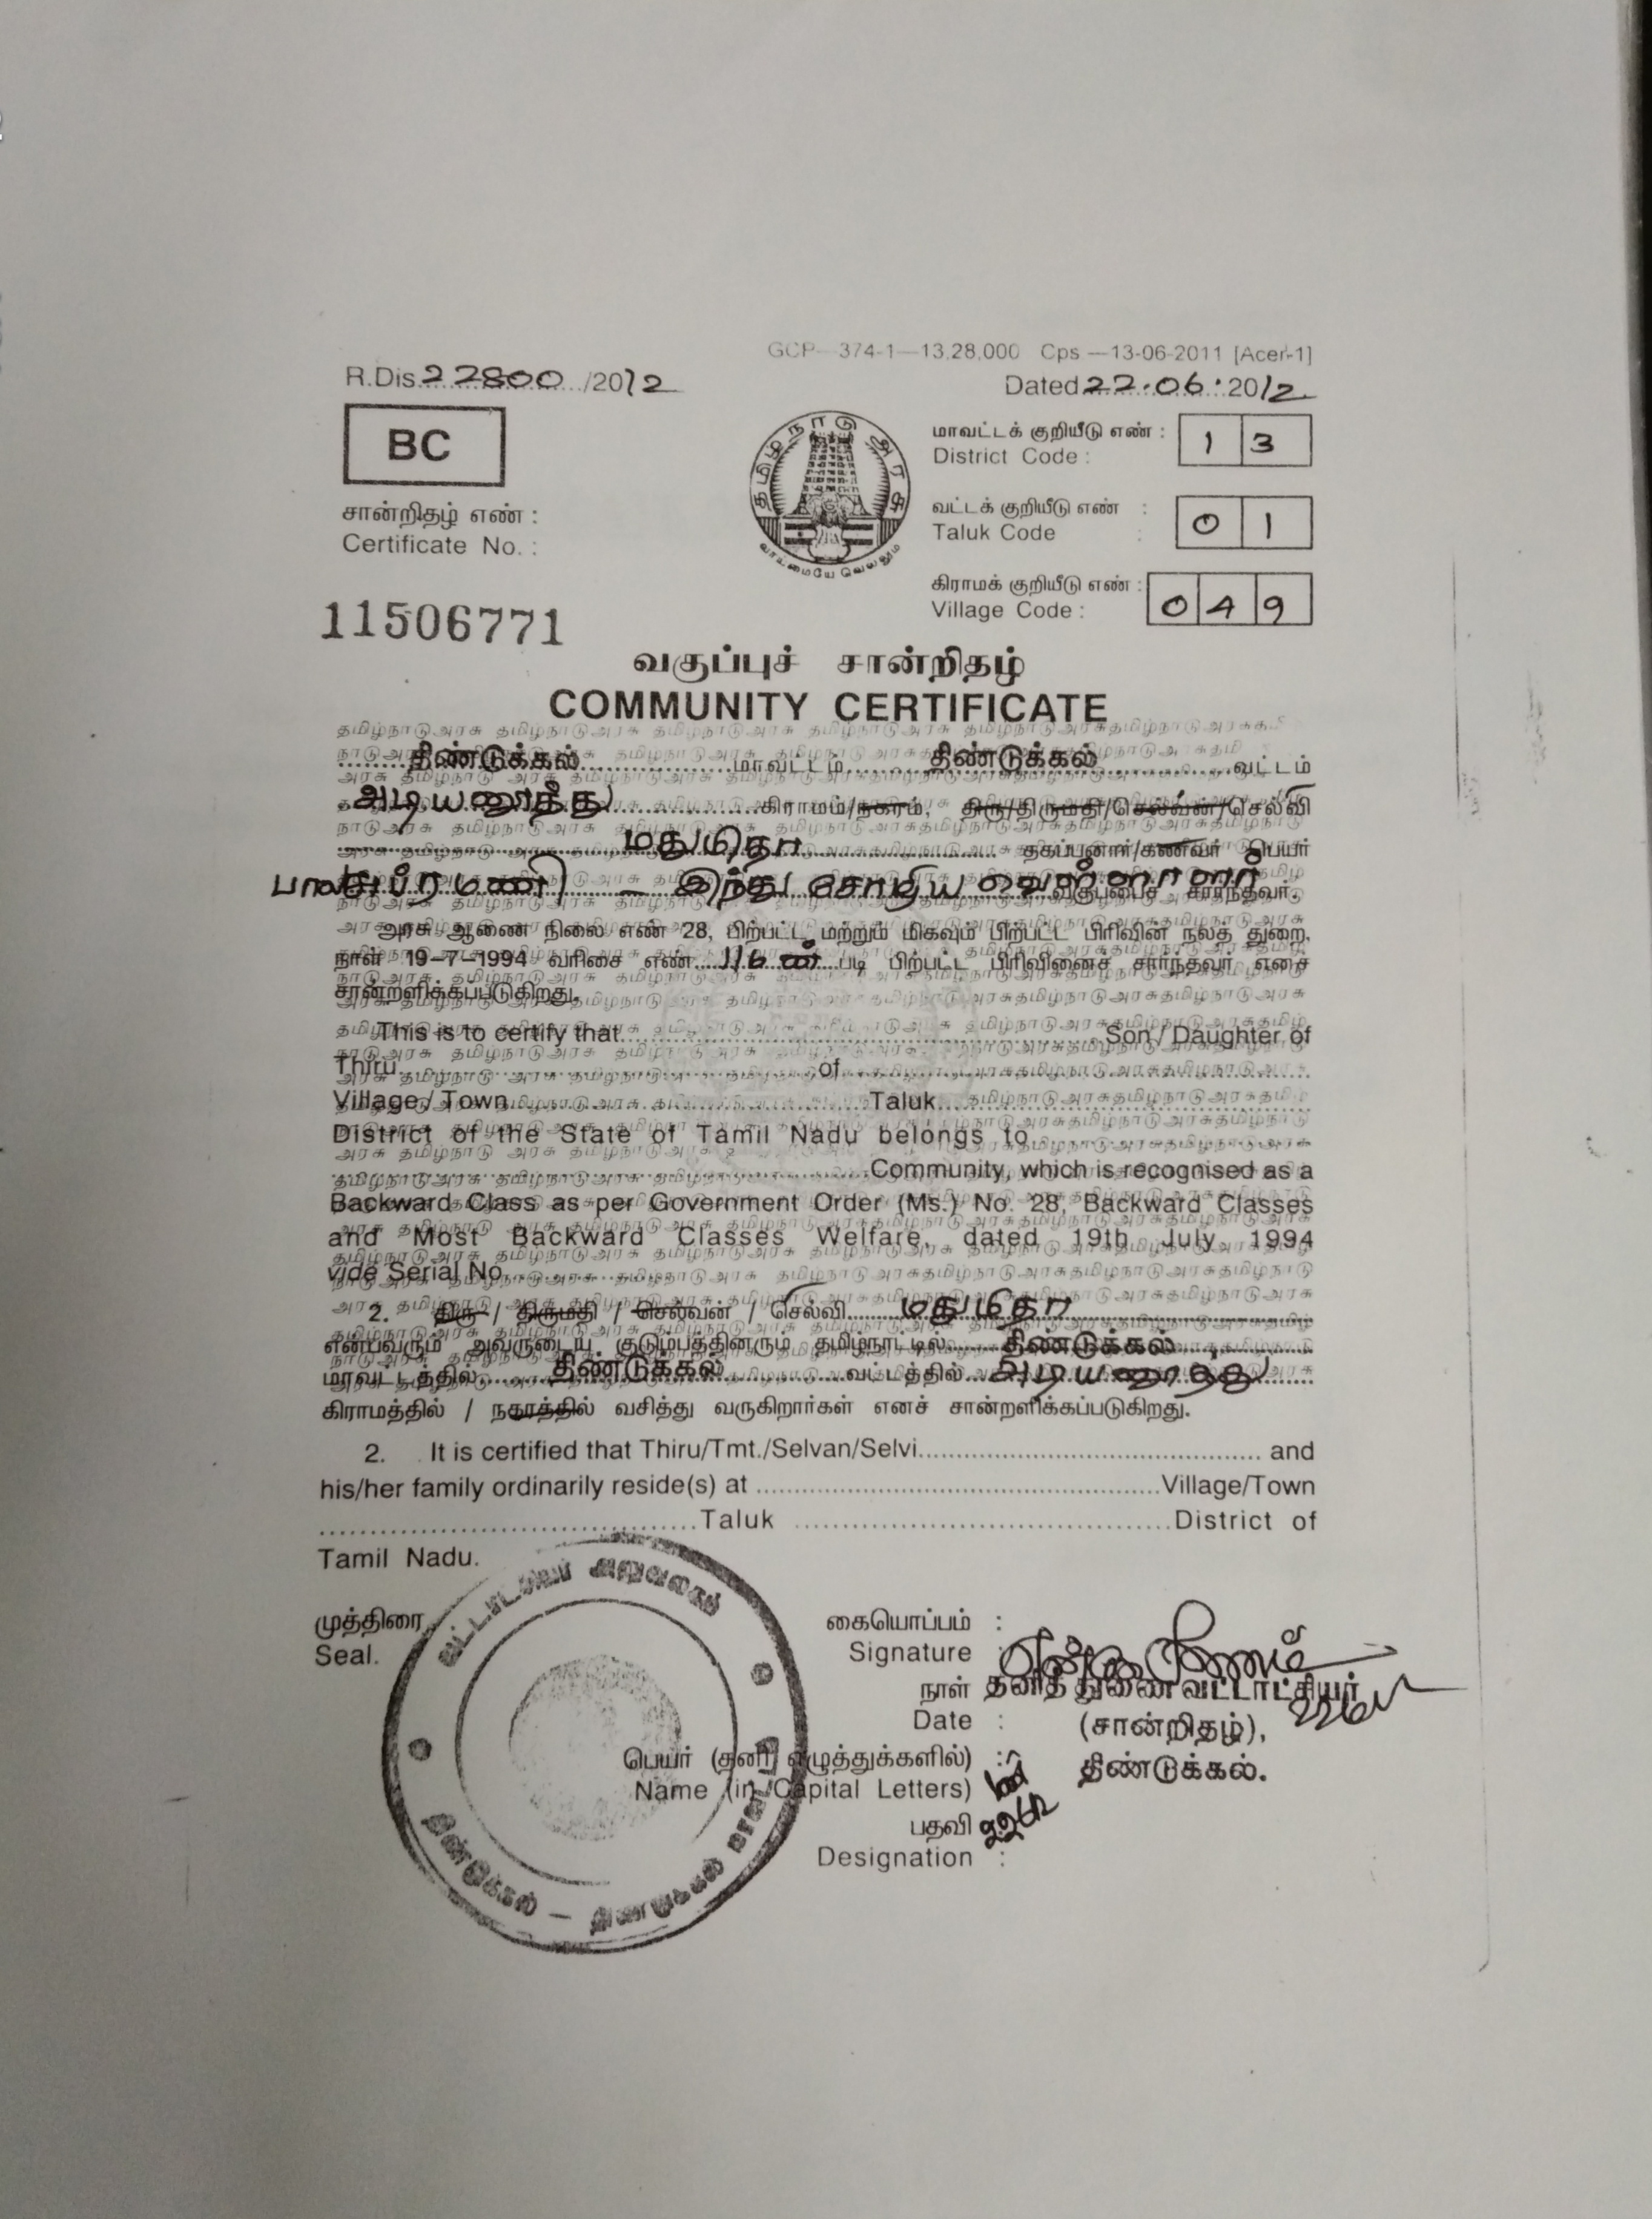 GCP—374-1—13,28,000 Cps —13-06-2011 [Acer-1]
R.Dis.22800/2012
Dated 22.06.2012
BC
தமிழ்நாடு அரசு
வாய்மையே வெல்லும்
மாவட்டக் குறியீடு எண் : 1 3
District Code :
சான்றிதழ் எண் :
Certificate No. :
வட்டக் குறியீடு எண் : 0 1
Taluk Code :
கிராமக் குறியீடு எண் : 0 4 9
Village Code :
11506771
வகுப்புச் சான்றிதழ்
COMMUNITY CERTIFICATE
திண்டுக்கல் மாவட்டம் திண்டுக்கல் வட்டம்
அடியனூத்து கிராமம்/நகரம், திரு/திருமதி/செல்வன்/செல்வி
மதுமிதா தகப்பனார்/கணவர் பெயர்
பாலசுப்ரமணி – இந்து சோழிய வெள்ளாளர் வகுப்பைச் சார்ந்தவர்.
அரசு ஆணை நிலை எண் 28, பிற்பட்ட மற்றும் மிகவும் பிற்பட்ட பிரிவின் நலத் துறை,
நாள் 19–7–1994 வரிசை எண் படி பிற்பட்ட பிரிவினைச் சார்ந்தவர் எனச்
சான்றளிக்கப்படுகிறது.
This is to certify that Son / Daughter of
Thiru of
Village / Town Taluk
District of the State of Tamil Nadu belongs to
Community, which is recognised as a
Backward Class as per Government Order (Ms.) No. 28, Backward Classes
and Most Backward Classes Welfare, dated 19th July 1994
vide Serial No.
2. திரு / திருமதி / செல்வன் / செல்வி மதுமிதா
என்பவரும் அவருடைய குடும்பத்தினரும் தமிழ்நாட்டில் திண்டுக்கல்
மாவட்டத்தில் திண்டுக்கல் வட்டத்தில் அடியனூத்து
கிராமத்தில் / நகரத்தில் வசித்து வருகிறார்கள் எனச் சான்றளிக்கப்படுகிறது.
2. It is certified that Thiru/Tmt./Selvan/Selvi and
his/her family ordinarily reside(s) at Village/Town
Taluk District of
Tamil Nadu.
வட்டாட்சியர் அலுவலகம்
திண்டுக்கல் – திண்டுக்கல் மாவட்டம்
முத்திரை
Seal.
கையொப்பம் :
Signature :
நாள் தனித் துணை வட்டாட்சியர்
Date : (சான்றிதழ்),
பெயர் (தனி எழுத்துக்களில்) : திண்டுக்கல்.
Name (in Capital Letters)
பதவி
Designation :